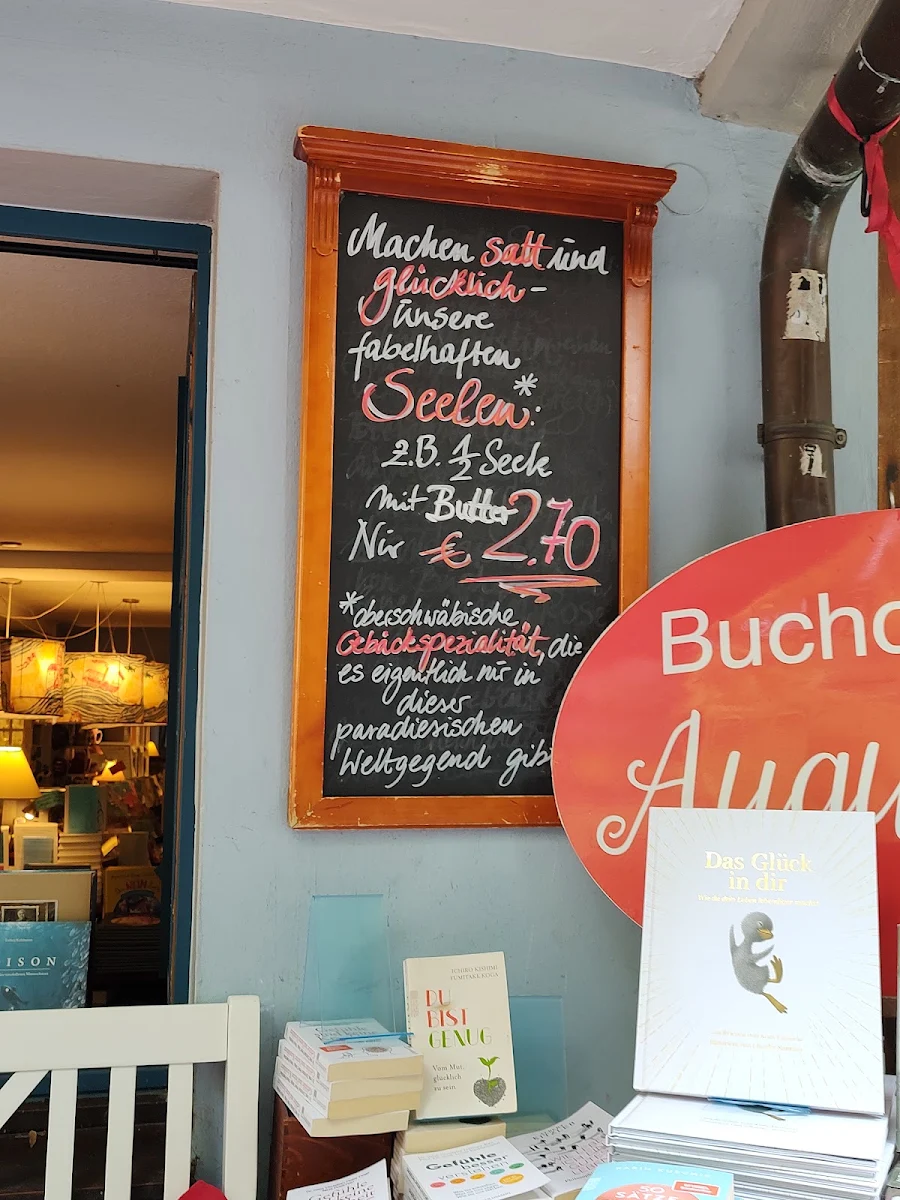 Machen satt und
glücklich -
unsere
fabelhaften
Seelen*:
z.B. 1/2 Seele
mit Butter
Nur € 2.70
*oberschwäbische
Gebäckspezialität, die
es eigentlich nur in
dieser
paradiesischen
Weltgegend gibt
Bucho
Augu
Das Glück
in dir
ICHIRO KISHIMI
FUMITAKE KOGA
DU
BIST
GENUG
Vom Mut,
glücklich
zu sein
Gefühle
besser
verstehen
ISON
SO